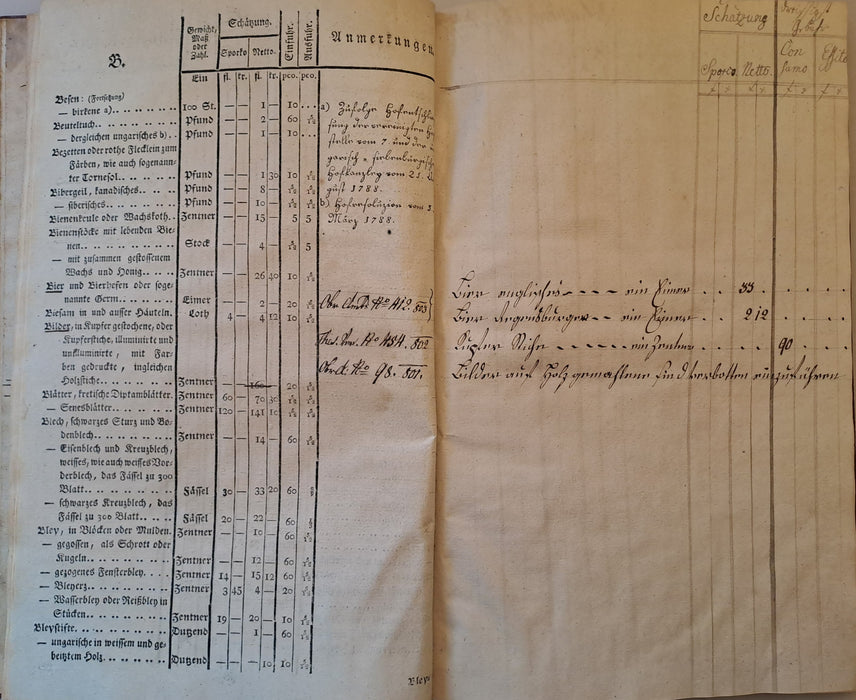 B.
Gewicht, Maß oder Zahl.
Schätzung.
Sporko Netto.
Einfuhr.
Ausfuhr.
Anmerkungen
Ein fl. kr. fl. kr. pco. pco.
Besen: (Fortsetzung)
— birkene a) 100 St. — — 1 — 10
Beuteltuch Pfund — — 2 — 60 5/12
— dergleichen ungarisches b) Pfund — — 1 — 10
Bezetten oder rothe Flecklein zum
Färben, wie auch sogenann-
ter Tornesol Pfund — — 1 30 10 5/12
Bibergeil, kanadisches Pfund — — 8 — 5/12
— siberisches Pfund — — 10 — 5/12
Bienenkeule oder Wachskoth Zentner — — 15 — 5 5
Bienenstöcke mit lebenden Bie-
nen Stock — — 4 — 5/12 5
— mit zusammen gestossenem
Wachs und Honig Zentner — — 26 40 10 5/12
Bier und Bierhefen oder soge-
nannte Germ Eimer — — 2 — 20 5/12
Biesam in und ausser Häuteln. Loth 4 — 4 12 10 5/12
Bilder, in Kupfer gestochene, oder
Kupferstiche, illuminirte und
unilluminirte, mit Far-
ben gedruckte, ingleichen
Holzstiche Zentner — — 160 — 20
Blätter, kretische Diptamblätter. Zentner 60 — 70 30 5/12
— Senesblätter Zentner 120 — 141 10 5/12
Blech, schwarzes Sturz und Bo-
denblech Zentner — — 14 — 60 5/12
— Eisenblech und Kreuzblech,
weisses, wie auch weisses Vor-
derblech, das Fässel zu 300
Blatt Fässel 30 — 33 20 60
— schwarzes Kreuzblech, das
Fässel zu 300 Blatt Fässel 20 — 22 — 60
Bley, in Blöcken oder Mulden. Zentner — — 10 — 60 5/12
— gegossen, als Schrott oder
Kugeln Zentner — — 12 — 60 5/12
— gezogenes Fensterbley Zentner 14 — 15 12 60 5/12
— Bleyerz Zentner 3 45 4 — 20 5/12
— Wasserbley oder Reißbley in
Stücken Zentner 19 — 20 — 10 5/12
Bleystifte Dutzend — — 1 — 60 5/12
— ungarische in weissem und ge-
beitztem Holz Dutzend — — — 10 10 5/12
Bley
a) Zufolge Hofentschlie
ßung der vereinigten Hof
stelle vom 7. und der
garisch = siebenbürgische
Hofkanzley vom 21.
gust 1788.
b) Hofresoluzion vom
März 1788.
No 412. 803
No 484. 802
No 98. 801.
Schätzung
Sporco. Netto.
Con
sumo
Bier englisches — — — ein Eimer . . 33 . . . .
Bier Regensburger — — ein Eimer . . 2 12 . . . .
Kupfer Stiche — — — — ein Zentner . . . . 90 . . .
Bilder auf Holz gemahlene sind verbotten einzuführen